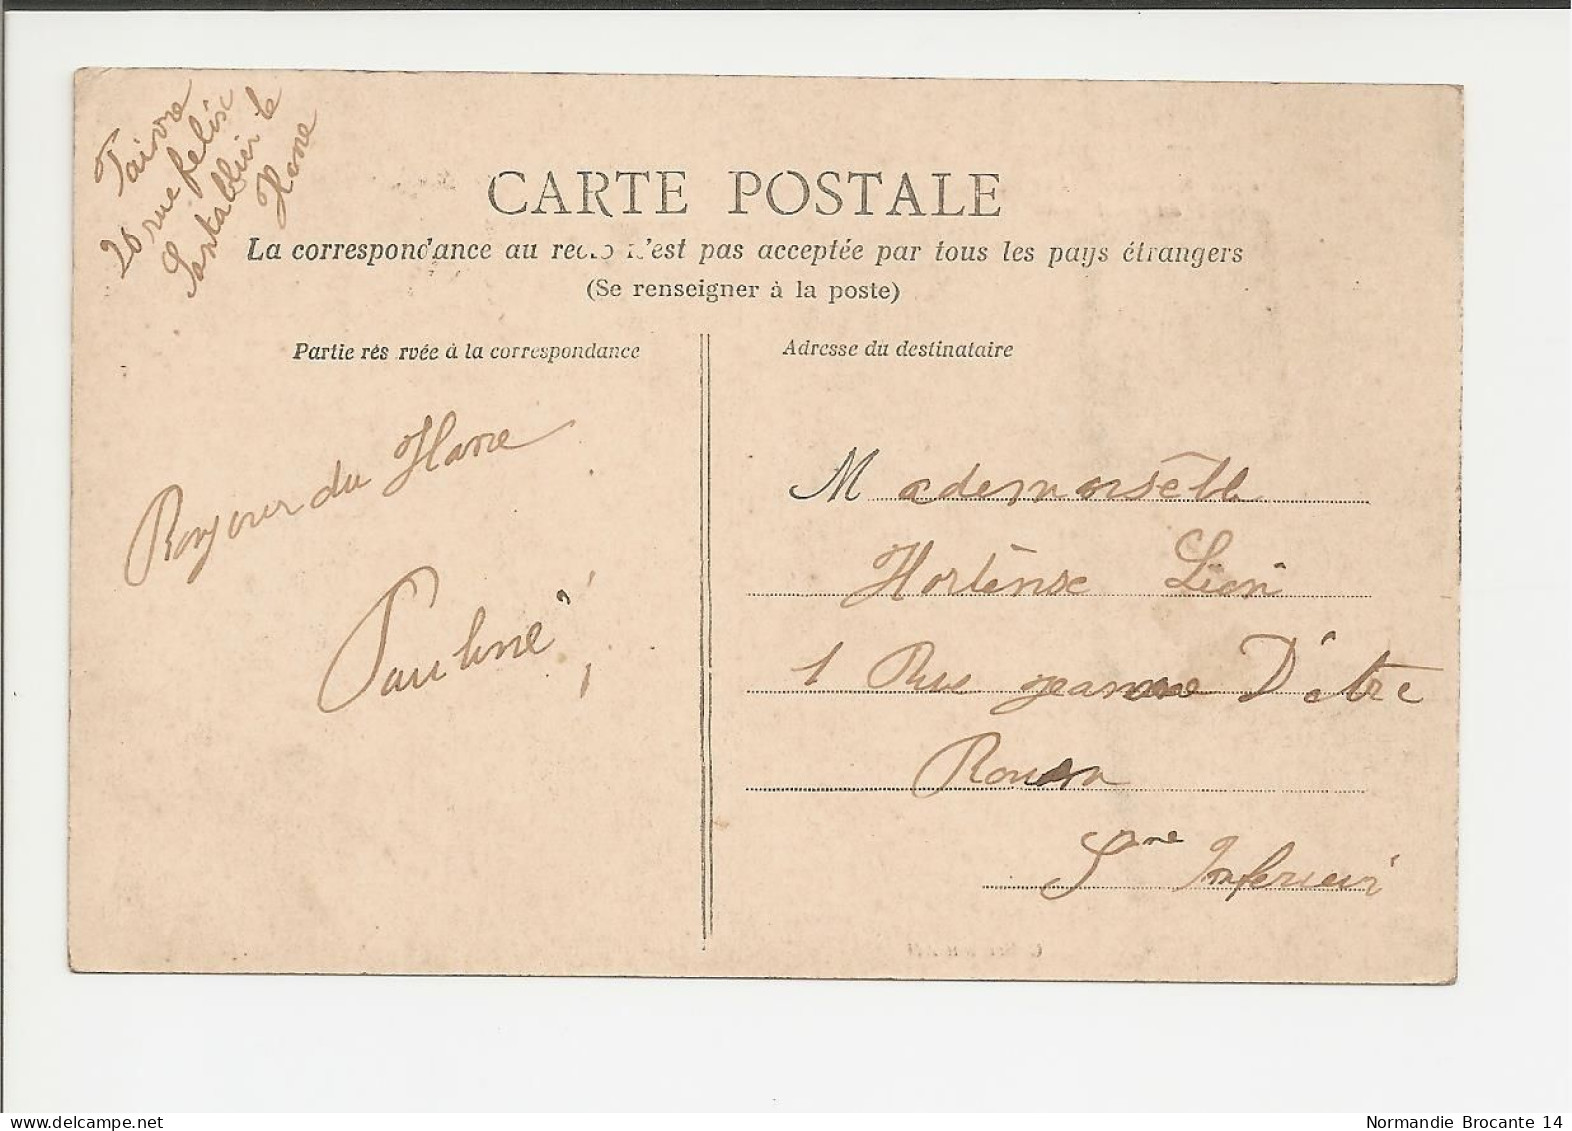 Faivre
26 rue felix
Santallier le
Havre
CARTE POSTALE
La correspondance au recto n'est pas acceptée par tous les pays étrangers
(Se renseigner à la poste)
Partie réservée à la correspondance
Adresse du destinataire
Bonjour du Havre
Pauline
Mademoiselle
Hortense Lion
1 Rue jeanne D'
Rouen
Sne Inferieur
Normandie Brocante 14